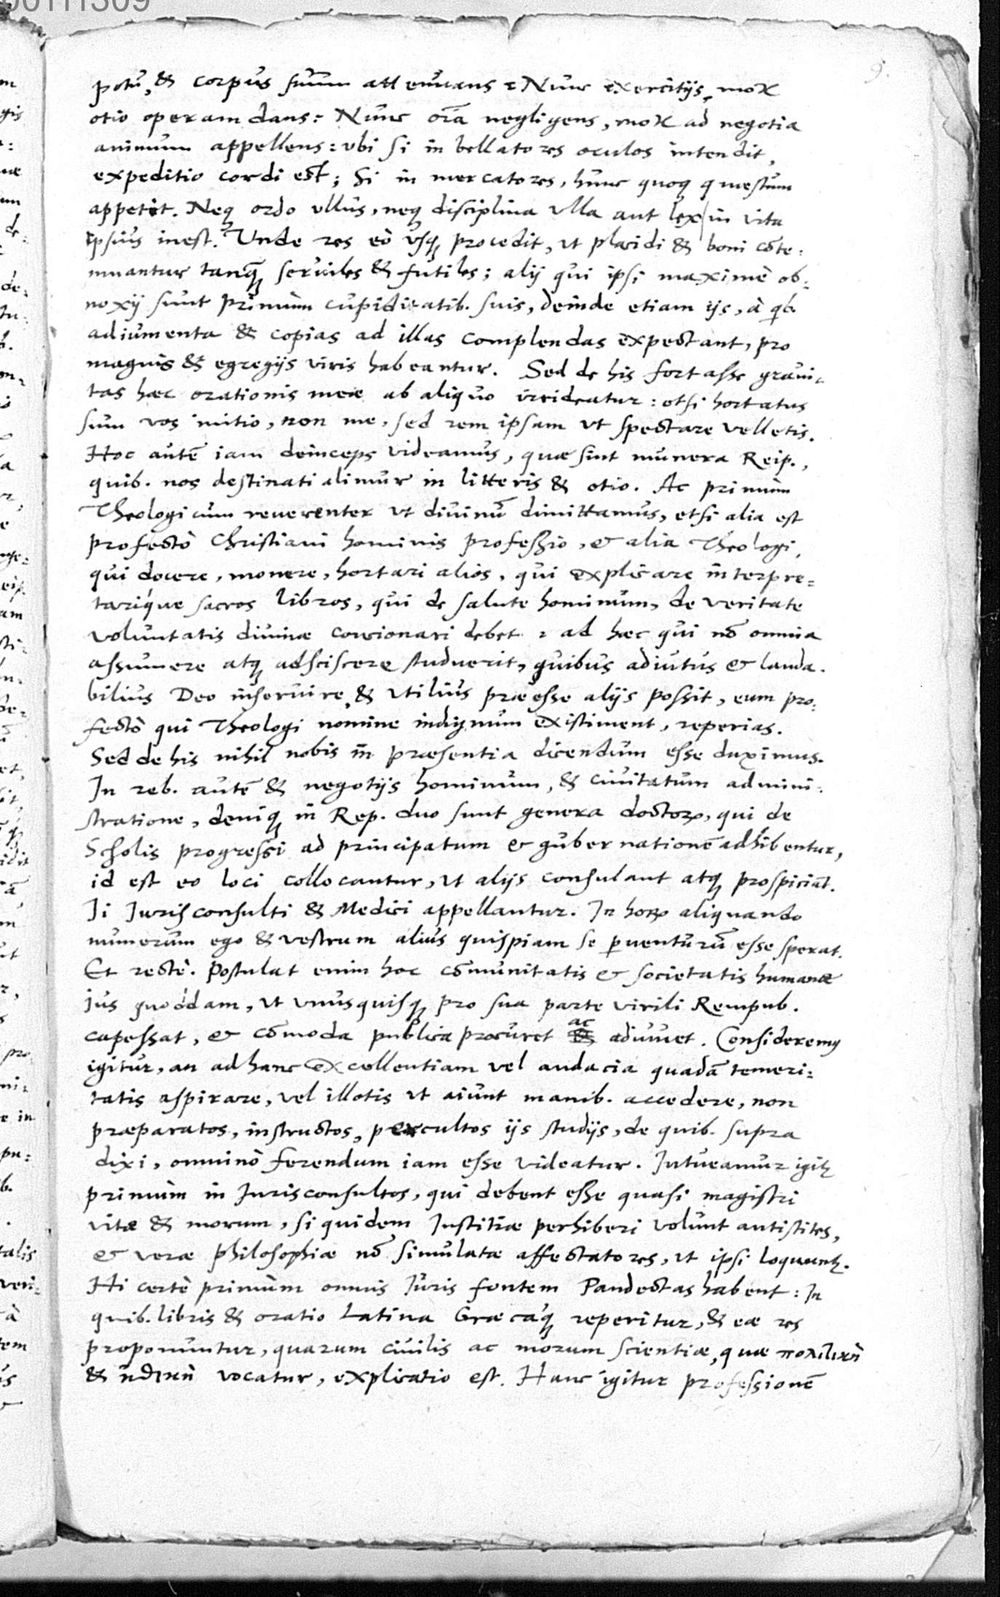 00111309
9.
potu, & corpus suum attenuans: Nunc exercitijs, mox
otio operam dans: Nunc oīa negligens, mox ad negotia
animum appellens: vbi si in bellatores oculos intendit,
expeditio cordi est; Si in mercatores, hunc quoq quæstum
appetit. Neq ordo vllus, neq disciplina vlla aut lex in vita
ipsius inest. Unde res eò vsq procedit, ut placidi & boni cōte-
mnantur tanq seruiles & futiles; alij qui ipsi maximè ob-
noxij sunt primùm cupiditatib. suis, deinde etiam ijs, à qb.
adiumenta & copias ad illas complendas expectant, pro
magnis & egregijs viris habeantur. Sed de his fortasse graui-
tas hæc orationis meæ ab aliquo irrideatur: etsi hortatus
sum vos initio, non me, sed rem ipsam ut spectare velletis.
Hoc autē iam deinceps videamus, quæ sint munera Reip.,
quib. nos destinati alimur in litteris & otio. Ac primùm
Theologicum reuerenter ut diuinū dimittamus, etsi alia est
profectò Christiani hominis professio, & alia Theologi,
qui docere, monere, hortari alios, qui explicare interpre-
tarique sacros libros, qui de salute hominum, de veritate
voluntatis diuinæ concionari debet: ad hæc qui nō omnia
assumere atq adsciscere studuerit, quibus adiutus & lauda-
bilius Deo inseruire & vtilius præesse alijs possit, eum pro-
fectò qui Theologi nomine indignum existiment, reperias.
Sed de his nihil nobis in præsentia dicendum esse duximus.
In reb. autē & negotijs hominum, & ciuitatum admini-
stratione, deniq in Rep. duo sunt genera doctorꝝ, qui de
Scholis progressi ad principatum & gubernationē adhibentur,
id est eo loci collocantur, ut alijs consulant atq prospiciāt.
Ii Jurisconsulti & Medici appellantur. In horꝝ aliquando
numerum ego & vestrum alius quispiam se peruenturū esse sperat.
Et rectè. Postulat enim hoc cōmunitatis & societatis humanæ
ius quoddam, ut vnusquisq pro sua parte virili Rempub.
capessat, & cōmoda publica procuret ac adiuuet. Consideremus
igitur, an ad hanc excellentiam vel audacia quadā temeri-
tatis aspirare, vel illotis ut aiunt manib. accedere, non
præparatos, instructos, perexcultos ijs studijs, de quib. supra
dixi, omninò ferendum iam esse videatur. Intueamur igit
primùm in Jurisconsultos, qui debent esse quasi magistri
vitæ & morum, siquidem Justitiæ perhiberi volunt antistites,
& veræ philosophiæ nō simulatæ affectatores, ut ipsi loquunt.
Hi certè primùm omnis Juris fontem Pandectas habent: In
quib. libris & oratio Latina Græcaq reperitur, & eæ res
proponuntur, quarum ciuilis ac morum scientiæ, quæ πολιτικὴ
& ἠθικὴ vocatur, explicatio est. Hanc igitur professionē